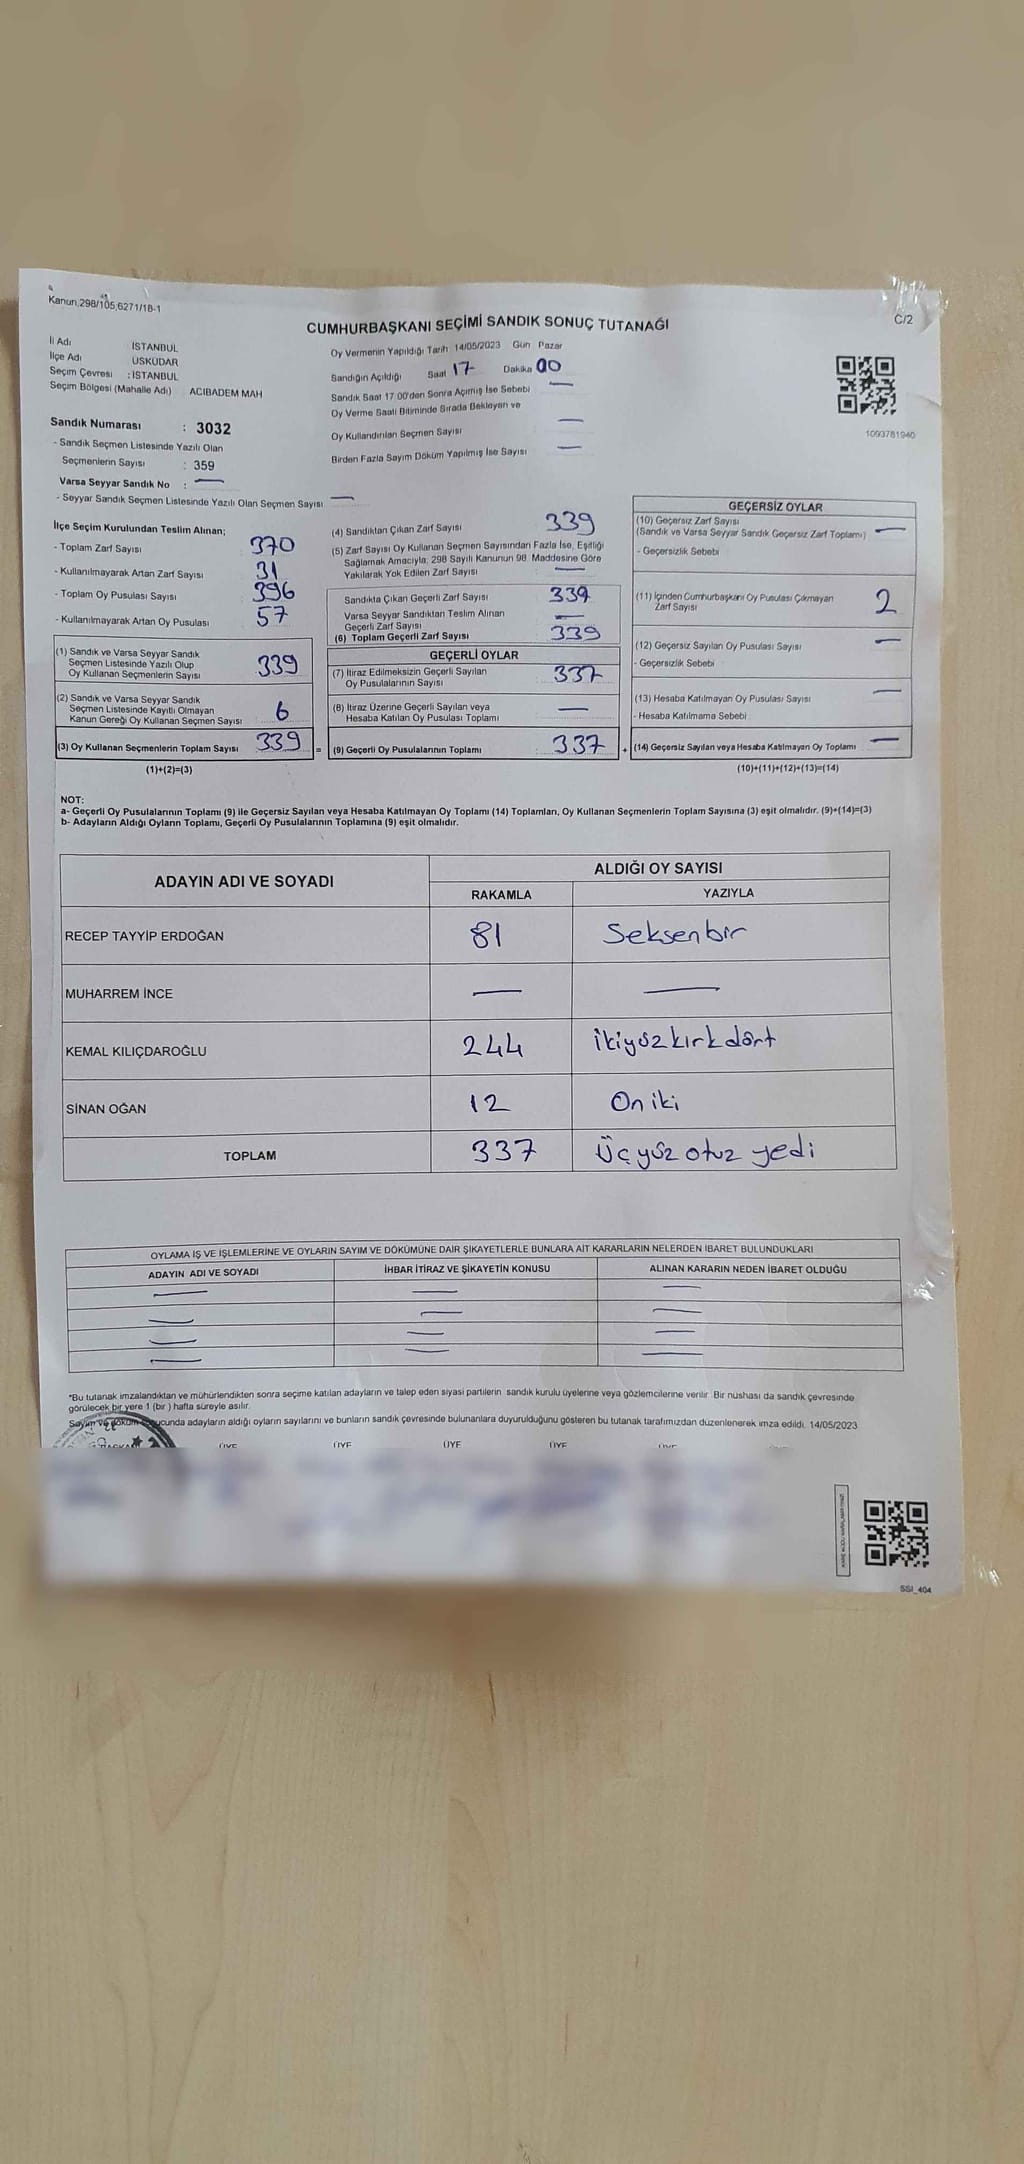 Kanun,298/105,6271/18-1
C/2
CUMHURBAŞKANI SEÇİMİ SANDIK SONUÇ TUTANAĞI
İl Adı İSTANBUL
İlçe Adı ÜSKÜDAR
Seçim Çevresi : İSTANBUL
Seçim Bölgesi (Mahalle Adı) ACIBADEM MAH
Sandık Numarası : 3032
- Sandık Seçmen Listesinde Yazılı Olan
Seçmenlerin Sayısı : 359
Varsa Seyyar Sandık No : —
- Seyyar Sandık Seçmen Listesinde Yazılı Olan Seçmen Sayısı —
Oy Vermenin Yapıldığı Tarih 14/05/2023 Gün Pazar
Sandığın Açıldığı Saat 17 Dakika 00
Sandık Saat 17:00'den Sonra Açılmış İse Sebebi —
Oy Verme Saati Bitiminde Sırada Bekleyen ve
Oy Kullandırılan Seçmen Sayısı —
Birden Fazla Sayım Döküm Yapılmış İse Sayısı —
1093781940
İlçe Seçim Kurulundan Teslim Alınan;
- Toplam Zarf Sayısı 370
- Kullanılmayarak Artan Zarf Sayısı 31
- Toplam Oy Pusulası Sayısı 396
- Kullanılmayarak Artan Oy Pusulası 57
(1) Sandık ve Varsa Seyyar Sandık
Seçmen Listesinde Yazılı Olup
Oy Kullanan Seçmenlerin Sayısı 339
(2) Sandık ve Varsa Seyyar Sandık
Seçmen Listesinde Kayıtlı Olmayan
Kanun Gereği Oy Kullanan Seçmen Sayısı : 6
(3) Oy Kullanan Seçmenlerin Toplam Sayısı 339 =
(1)+(2)=(3)
(4) Sandıktan Çıkan Zarf Sayısı 339
(5) Zarf Sayısı Oy Kullanan Seçmen Sayısından Fazla İse, Eşitliği
Sağlamak Amacıyla, 298 Sayılı Kanunun 98. Maddesine Göre
Yakılarak Yok Edilen Zarf Sayısı : —
Sandıkta Çıkan Geçerli Zarf Sayısı 339
Varsa Seyyar Sandıktan Teslim Alınan
Geçerli Zarf Sayısı —
(6) Toplam Geçerli Zarf Sayısı 339
GEÇERLİ OYLAR
(7) İtiraz Edilmeksizin Geçerli Sayılan
Oy Pusulalarının Sayısı 337
(8) İtiraz Üzerine Geçerli Sayılan veya
Hesaba Katılan Oy Pusulası Toplamı —
(9) Geçerli Oy Pusulalarının Toplamı : 337 +
GEÇERSİZ OYLAR
(10) Geçersiz Zarf Sayısı
(Sandık ve Varsa Seyyar Sandık Geçersiz Zarf Toplamı) —
- Geçersizlik Sebebi
(11) İçinden Cumhurbaşkanı Oy Pusulası Çıkmayan
Zarf Sayısı 2
(12) Geçersiz Sayılan Oy Pusulası Sayısı —
- Geçersizlik Sebebi
(13) Hesaba Katılmayan Oy Pusulası Sayısı —
- Hesaba Katılmama Sebebi
(14) Geçersiz Sayılan veya Hesaba Katılmayan Oy Toplamı —
(10)+(11)+(12)+(13)=(14)
NOT:
a- Geçerli Oy Pusulalarının Toplamı (9) ile Geçersiz Sayılan veya Hesaba Katılmayan Oy Toplamı (14) Toplamları, Oy Kullanan Seçmenlerin Toplam Sayısına (3) eşit olmalıdır. (9)+(14)=(3)
b- Adayların Aldığı Oyların Toplamı, Geçerli Oy Pusulalarının Toplamına (9) eşit olmalıdır.
ADAYIN ADI VE SOYADI ALDIĞI OY SAYISI
RAKAMLA YAZIYLA
RECEP TAYYİP ERDOĞAN 81 Seksenbir
MUHARREM İNCE — —
KEMAL KILIÇDAROĞLU 244 İkiyüzkırkdört
SİNAN OĞAN 12 On iki
TOPLAM 337 Üçyüz otuz yedi
OYLAMA İŞ VE İŞLEMLERİNE VE OYLARIN SAYIM VE DÖKÜMÜNE DAİR ŞİKAYETLERLE BUNLARA AİT KARARLARIN NELERDEN İBARET BULUNDUKLARI
ADAYIN ADI VE SOYADI İHBAR İTİRAZ VE ŞİKAYETİN KONUSU ALINAN KARARIN NEDEN İBARET OLDUĞU
— — —
— — —
— — —
— — —
*Bu tutanak imzalandıktan ve mühürlendikten sonra seçime katılan adayların ve talep eden siyasi partilerin sandık kurulu üyelerine veya gözlemcilerine verilir. Bir nüshası da sandık çevresinde
görülecek bir yere 1 (bir ) hafta süreyle asılır.
Sayım ve döküm sonucunda adayların aldığı oyların sayılarını ve bunların sandık çevresinde bulunanlara duyurulduğunu gösteren bu tutanak tarafımızdan düzenlenerek imza edildi. 14/05/2023
ÜYE ÜYE ÜYE ÜYE
SSI_404